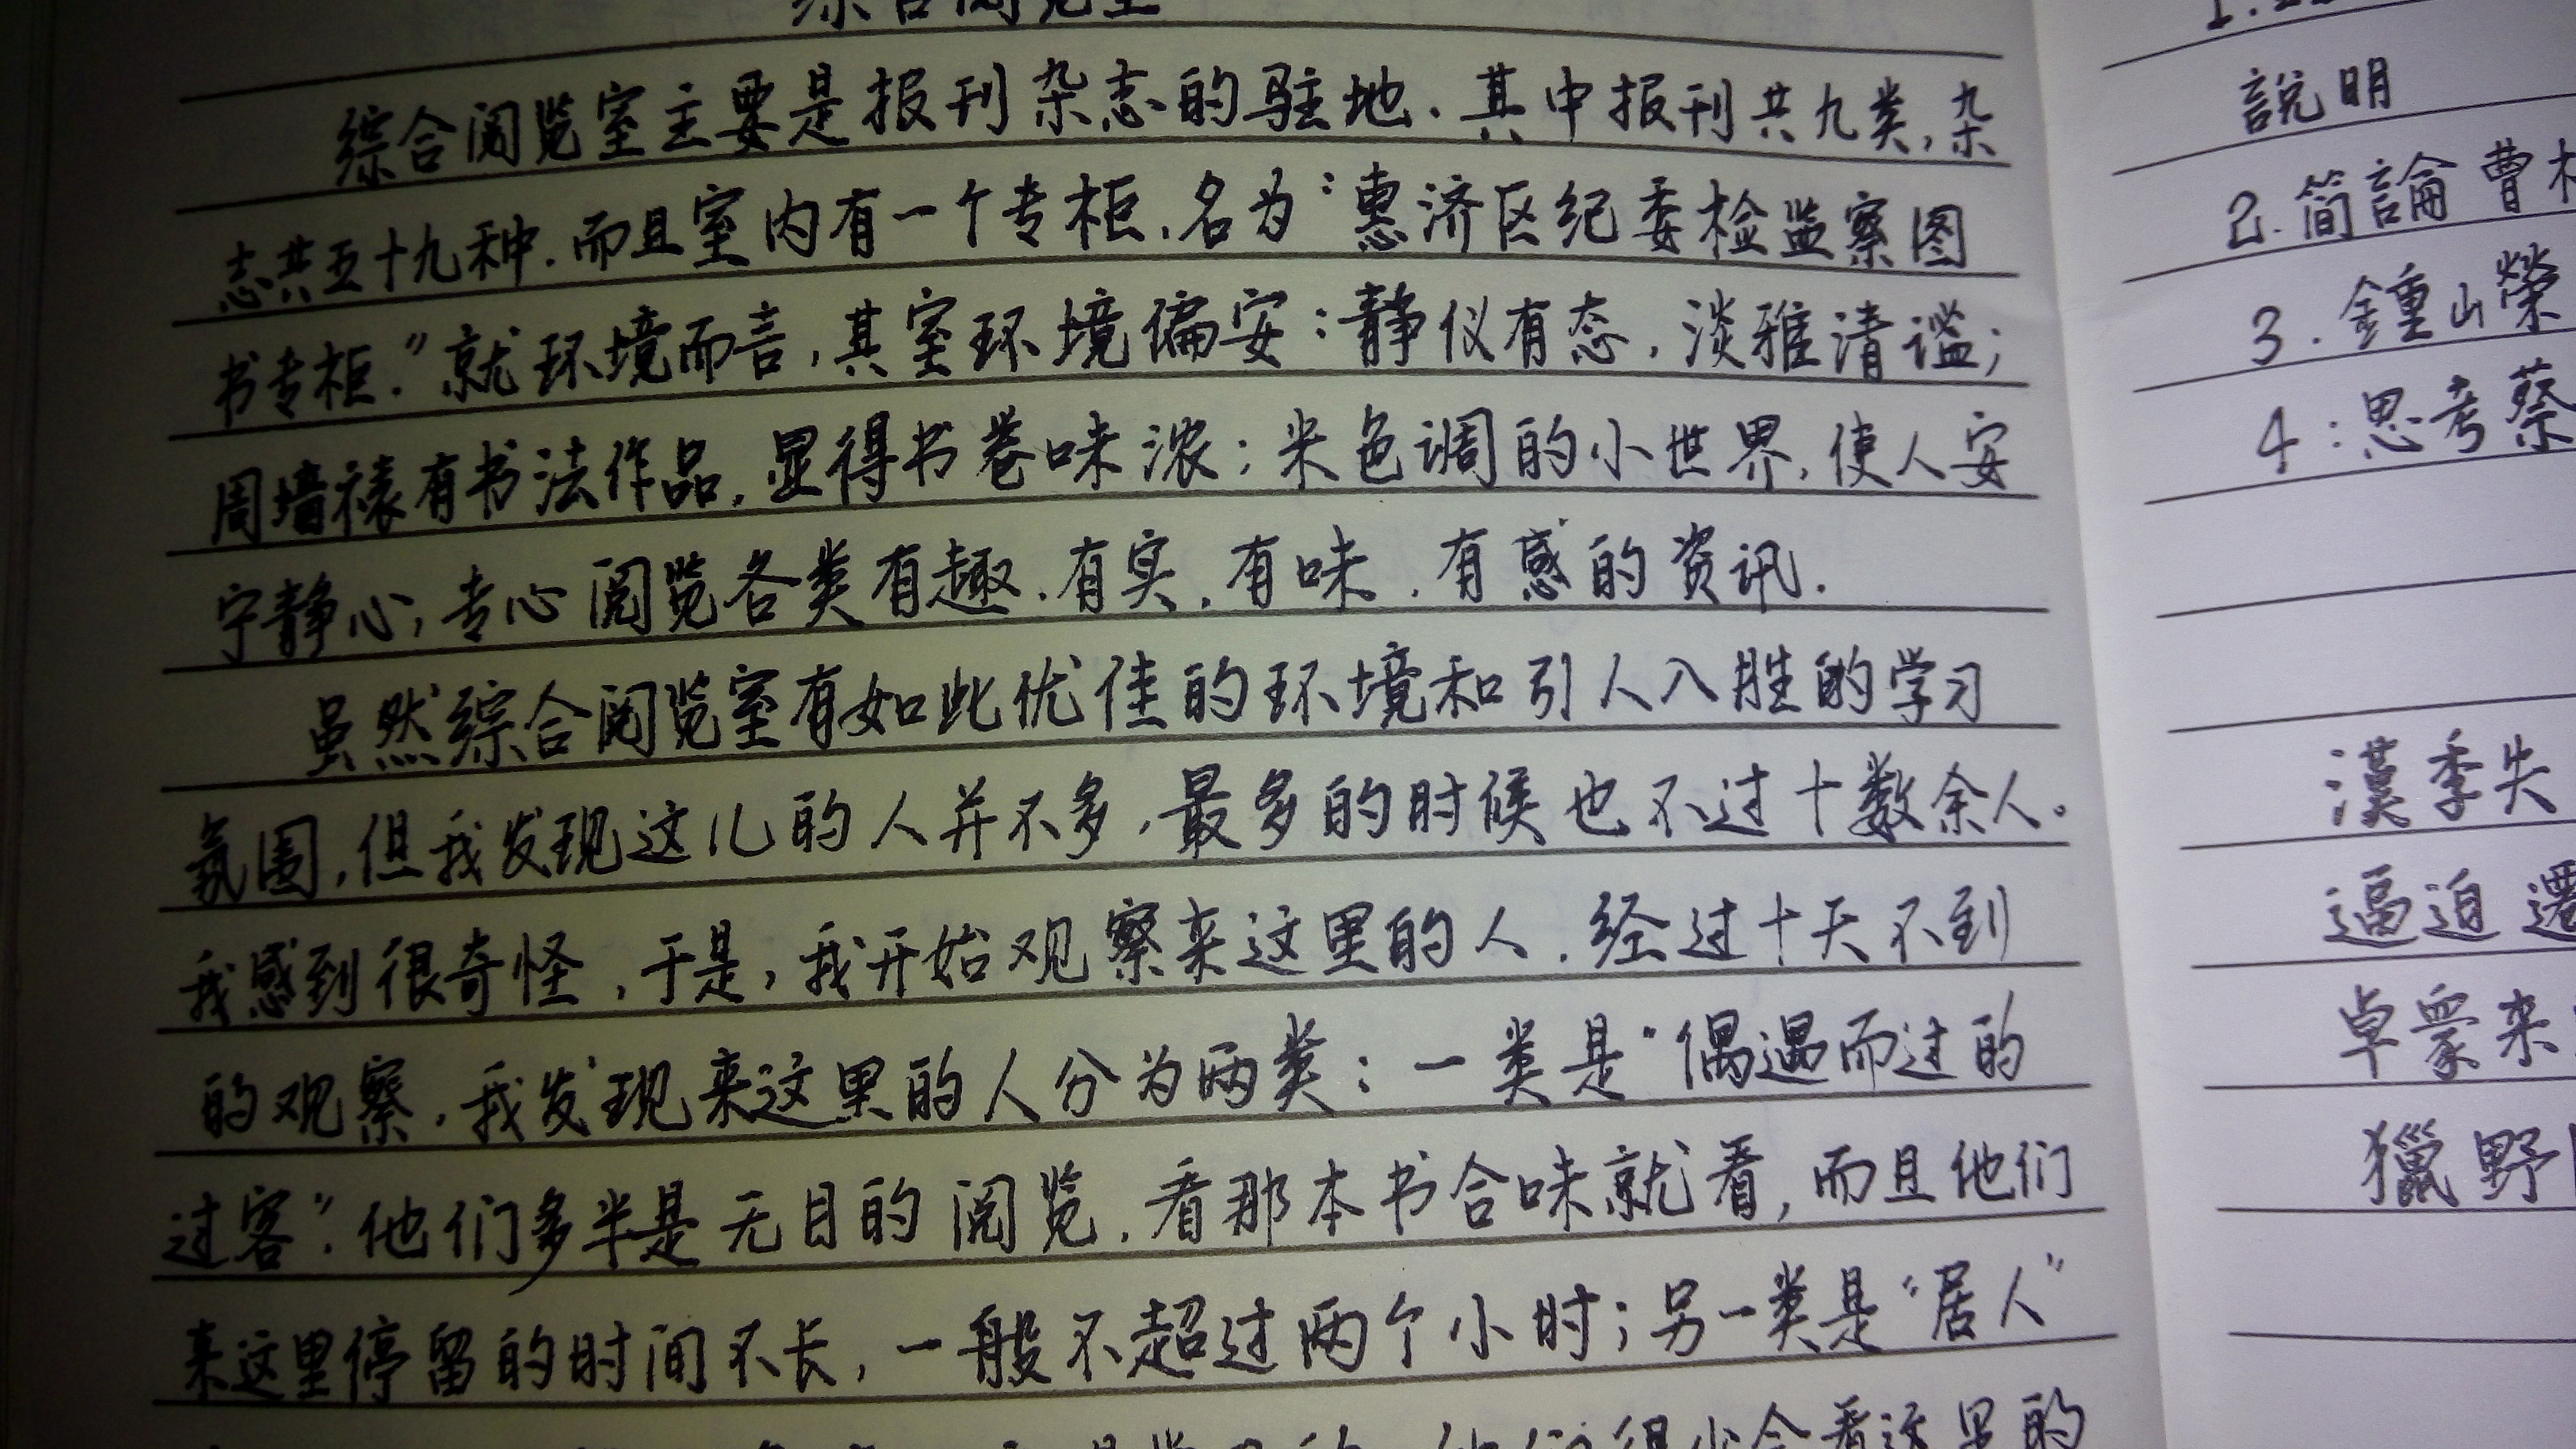 综合阅览室
综合阅览室主要是报刊杂志的驻地.其中报刊共九类,杂
志共五十九种.而且室内有一个专柜,名为“惠济区纪委检监察图
书专柜.”就环境而言,其室环境偏安:静仪有态,淡雅清谧;
周墙裱有书法作品,显得书卷味浓;米色调的小世界,使人安
宁静心,专心阅览各类有趣.有实.有味.有感的资讯.
虽然综合阅览室有如此优佳的环境和引人入胜的学习
氛围,但我发现这儿的人并不多,最多的时候也不过十数余人。
我感到很奇怪,于是,我开始观察来这里的人.经过十天不到
的观察,我发现来这里的人分为两类:一类是“偶遇而过的
过客”.他们多半是无目的阅览,看那本书合味就看,而且他们
来这里停留的时间不长,一般不超过两个小时;另一类是“居人”
說明
2.简論曹
3.鍾山榮
4:思考蔡
漢季失
逼迫
卓眾来
獵野